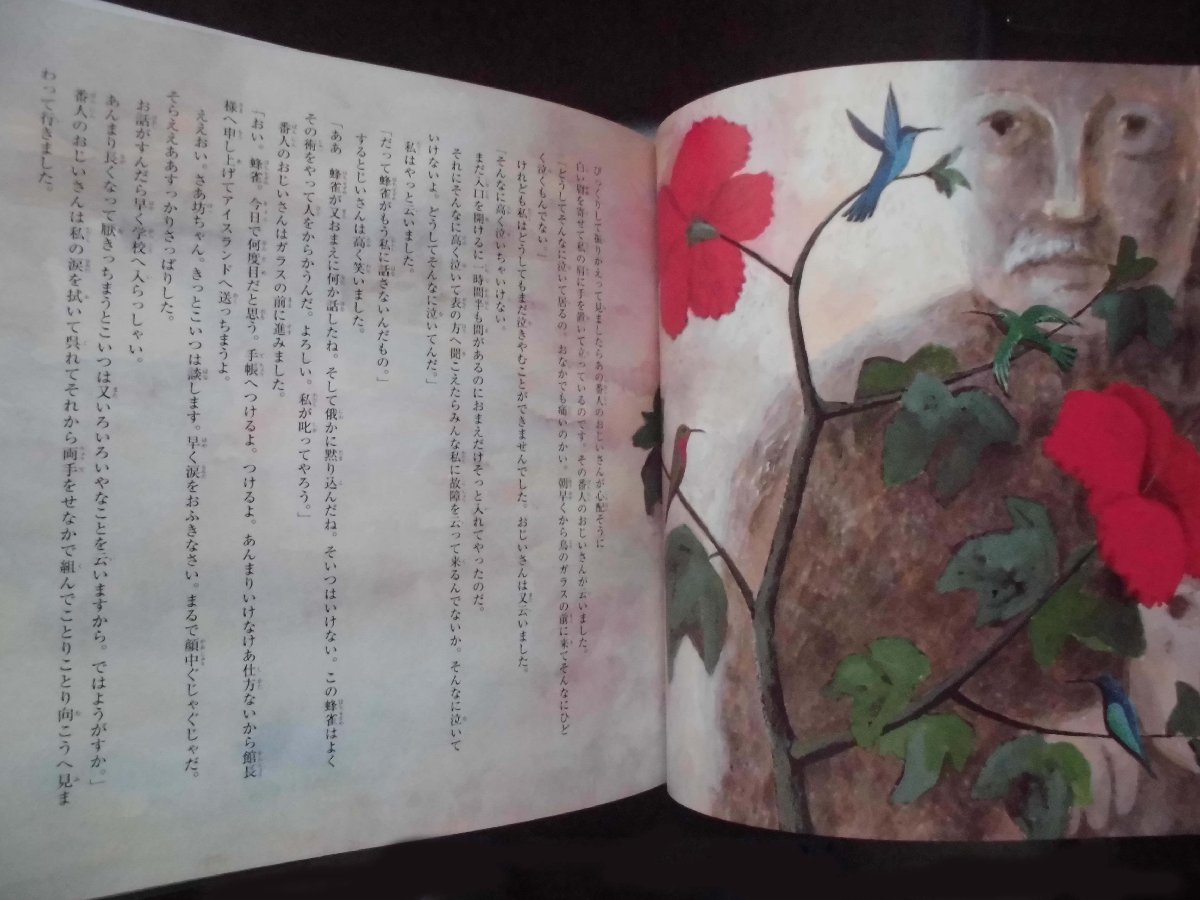 びっくりして振りかえって見ましたらあの番人のおじいさんが心配そうに
白い眉を寄せて私の肩に手を置いて立っているのです。その番人のおじいさんが云いました。
「どうしてそんなに泣いて居るの。おなかでも痛いのかい。朝早くから鳥のガラスの前に来てそんなにひど
く泣くもんでない」
けれども私はどうしてもまだ泣きやむことができませんでした。おじいさんは又云いました。
「そんなに高く泣いちゃいけない
まだ入口を開けるに一時間半も間があるのにおまえだけそっと入れてやったのだ。
それにそんなに高く泣いて表の方へ聞こえたらみんな私に故障を云って来るんでないか。そんなに泣いて
いけないよ。どうしてそんなに泣いてんだ。」
私はやっと云いました。
「だって蜂雀がもう私に話さないんだもの。」
するとじいさんは高く笑いました。
「ああ 蜂雀が又おまえに何か話したね。そして俄かに黙り込んだね。そいつはいけない。この蜂雀はよく
その術をやって人をからかうんだ。よろしい。私が叱ってやろう。」
番人のおじいさんはガラスの前に進みました。
「おい。蜂雀。今日で何度目だと思う。手帳へつけるよ。つけるよ。あんまりいけなけあ仕方ないから館長
様へ申し上げてアイスランドへ送っちまうよ。
ええおい。さあ坊ちゃん。きっとこいつは談します。早く涙をおふきなさい。まるで顔中ぐじゃぐじゃだ。
そらええああすっかりさっぱりした。
お話がすんだら早く学校へ入らっしゃい。
あんまり長くなって厭きっちまうとこいつは又いろいろいやなことを云いますから。ではようがすか。」
番人のおじいさんは私の涙を拭いて呉れてそれから両手をせなかで組んでことりことり向こうへ見ま
わって行きました。